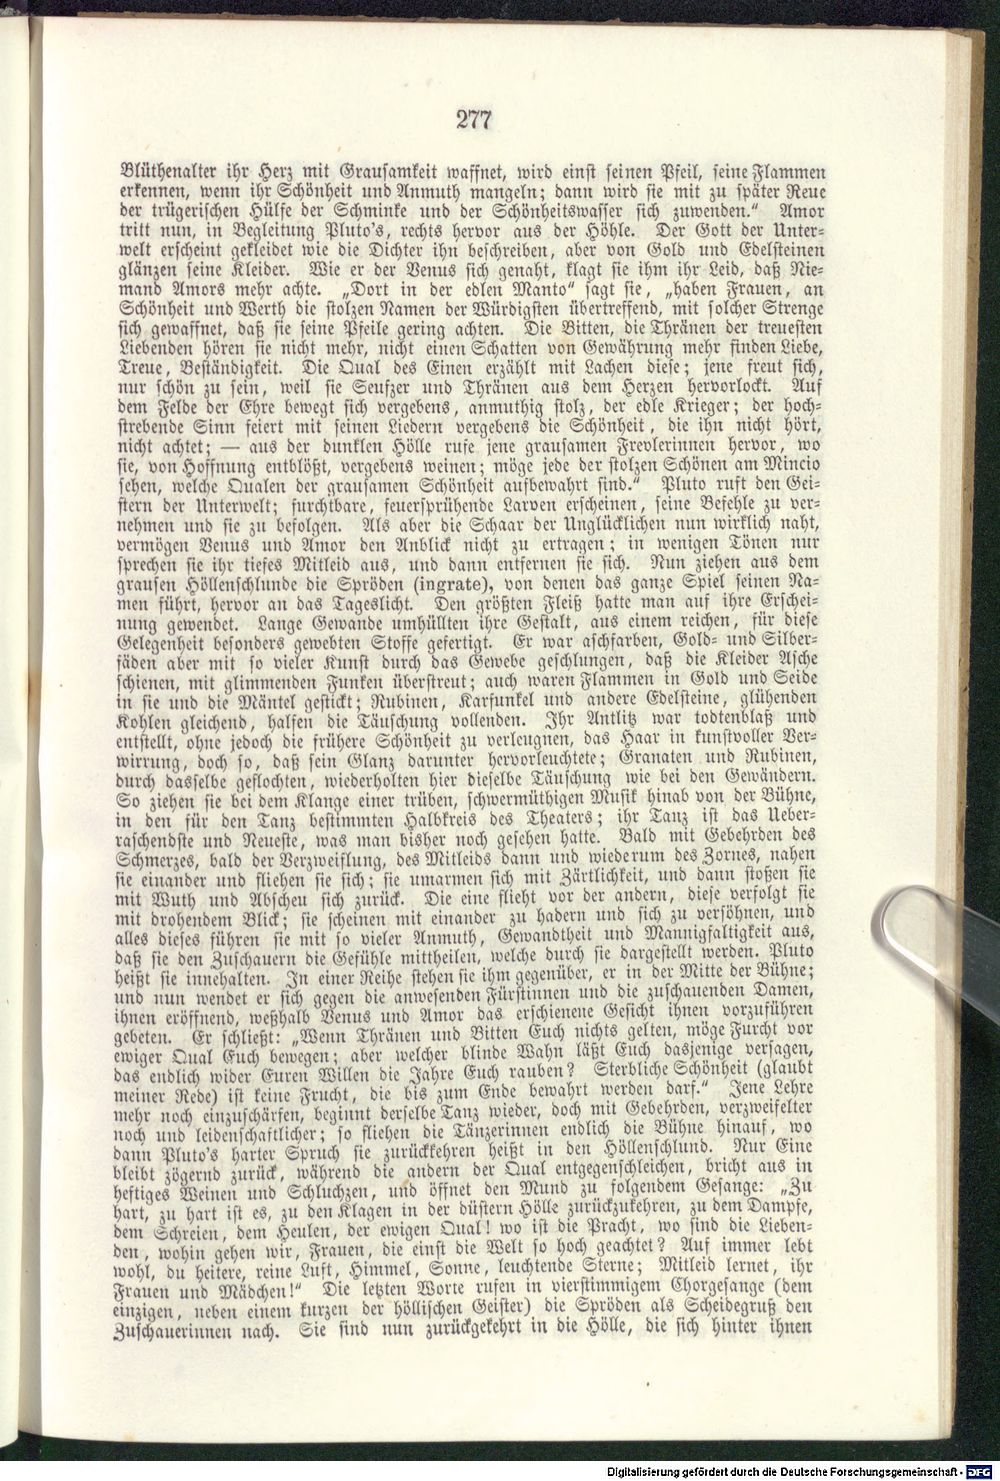 277
Blüthenalter ihr Herz mit Grausamkeit waffnet, wird einst seinen Pfeil, seine Flammen
erkennen, wenn ihr Schönheit und Anmuth mangeln; dann wird sie mit zu später Reue
der trügerischen Hülfe der Schminke und der Schönheitswasser sich zuwenden.“ Amor
tritt nun, in Begleitung Pluto's, rechts hervor aus der Höhle. Der Gott der Unter-
welt erscheint gekleidet wie die Dichter ihn beschreiben, aber von Gold und Edelsteinen
glänzen seine Kleider. Wie er der Venus sich genaht, klagt sie ihm ihr Leid, daß Nie-
mand Amors mehr achte. „Dort in der edlen Manto“ sagt sie, „haben Frauen, an
Schönheit und Werth die stolzen Namen der Würdigsten übertreffend, mit solcher Strenge
sich gewaffnet, daß sie seine Pfeile gering achten. Die Bitten, die Thränen der treuesten
Liebenden hören sie nicht mehr, nicht einen Schatten von Gewährung mehr finden Liebe,
Treue, Beständigkeit. Die Qual des Einen erzählt mit Lachen diese; jene freut sich,
nur schön zu sein, weil sie Seufzer und Thränen aus dem Herzen hervorlockt. Auf
dem Felde der Ehre bewegt sich vergebens, anmuthig stolz, der edle Krieger; der hoch-
strebende Sinn feiert mit seinen Liedern vergebens die Schönheit, die ihn nicht hört,
nicht achtet; — aus der dunklen Hölle rufe jene grausamen Frevlerinnen hervor, wo
sie, von Hoffnung entblößt, vergebens weinen; möge jede der stolzen Schönen am Mincio
sehen, welche Qualen der grausamen Schönheit aufbewahrt sind.“ Pluto ruft den Gei-
stern der Unterwelt; furchtbare, feuersprühende Larven erscheinen, seine Befehle zu ver-
nehmen und sie zu befolgen. Als aber die Schaar der Unglücklichen nun wirklich naht,
vermögen Venus und Amor den Anblick nicht zu ertragen; in wenigen Tönen nur
sprechen sie ihr tiefes Mitleid aus, und dann entfernen sie sich. Nun ziehen aus dem
grausen Höllenschlunde die Spröden (ingrate), von denen das ganze Spiel seinen Na-
men führt, hervor an das Tageslicht. Den größten Fleiß hatte man auf ihre Erschei-
nung gewendet. Lange Gewande umhüllten ihre Gestalt, aus einem reichen, für diese
Gelegenheit besonders gewebten Stoffe gefertigt. Er war aschfarben, Gold- und Silber-
fäden aber mit so vieler Kunst durch das Gewebe geschlungen, daß die Kleider Asche
schienen, mit glimmenden Funken überstreut; auch waren Flammen in Gold und Seide
in sie und die Mäntel gestickt; Rubinen, Karfunkel und andere Edelsteine, glühenden
Kohlen gleichend, halfen die Täuschung vollenden. Ihr Antlitz war todtenblaß und
entstellt, ohne jedoch die frühere Schönheit zu verleugnen, das Haar in kunstvoller Ver-
wirrung, doch so, daß sein Glanz darunter hervorleuchtete; Granaten und Rubinen,
durch dasselbe geflochten, wiederholten hier dieselbe Täuschung wie bei den Gewändern.
So ziehen sie bei dem Klange einer trüben, schwermüthigen Musik hinab von der Bühne,
in den für den Tanz bestimmten Halbkreis des Theaters; ihr Tanz ist das Ueber-
raschendste und Neueste, was man bisher noch gesehen hatte. Bald mit Gebehrden des
Schmerzes, bald der Verzweiflung, des Mitleids dann und wiederum des Zornes, nahen
sie einander und fliehen sie sich; sie umarmen sich mit Zärtlichkeit, und dann stoßen sie
mit Wuth und Abscheu sich zurück. Die eine flieht vor der andern, diese verfolgt sie
mit drohendem Blick; sie scheinen mit einander zu hadern und sich zu versöhnen, und
alles dieses führen sie mit so vieler Anmuth, Gewandtheit und Mannigfaltigkeit aus,
daß sie den Zuschauern die Gefühle mittheilen, welche durch sie dargestellt werden. Pluto
heißt sie innehalten. In einer Reihe stehen sie ihm gegenüber, er in der Mitte der Bühne;
und nun wendet er sich gegen die anwesenden Fürstinnen und die zuschauenden Damen,
ihnen eröffnend, weßhalb Venus und Amor das erschienene Gesicht ihnen vorzuführen
gebeten. Er schließt: „Wenn Thränen und Bitten Euch nichts gelten, möge Furcht vor
ewiger Qual Euch bewegen; aber welcher blinde Wahn läßt Euch dasjenige versagen,
das endlich wider Euren Willen die Jahre Euch rauben? Sterbliche Schönheit (glaubt
meiner Rede) ist keine Frucht, die bis zum Ende bewahrt werden darf.“ Jene Lehre
mehr noch einzuschärfen, beginnt derselbe Tanz wieder, doch mit Gebehrden, verzweifelter
noch und leidenschaftlicher; so fliehen die Tänzerinnen endlich die Bühne hinauf, wo
dann Pluto's harter Spruch sie zurückkehren heißt in den Höllenschlund. Nur Eine
bleibt zögernd zurück, während die andern der Qual entgegenschleichen, bricht aus in
heftiges Weinen und Schluchzen, und öffnet den Mund zu folgendem Gesange: „Zu
hart, zu hart ist es, zu den Klagen in der düstern Hölle zurückzukehren, zu dem Dampfe,
dem Schreien, dem Heulen, der ewigen Qual! wo ist die Pracht, wo sind die Lieben-
den, wohin gehen wir, Frauen, die einst die Welt so hoch geachtet? Auf immer lebt
wohl, du heitere, reine Luft, Himmel, Sonne, leuchtende Sterne; Mitleid lernet, ihr
Frauen und Mädchen!“ Die letzten Worte rufen in vierstimmigem Chorgesange (dem
einzigen, neben einem kurzen der höllischen Geister) die Spröden als Scheidegruß den
Zuschauerinnen nach. Sie sind nun zurückgekehrt in die Hölle, die sich hinter ihnen
Digitalisierung gefördert durch die Deutsche Forschungsgemeinschaft - DFG